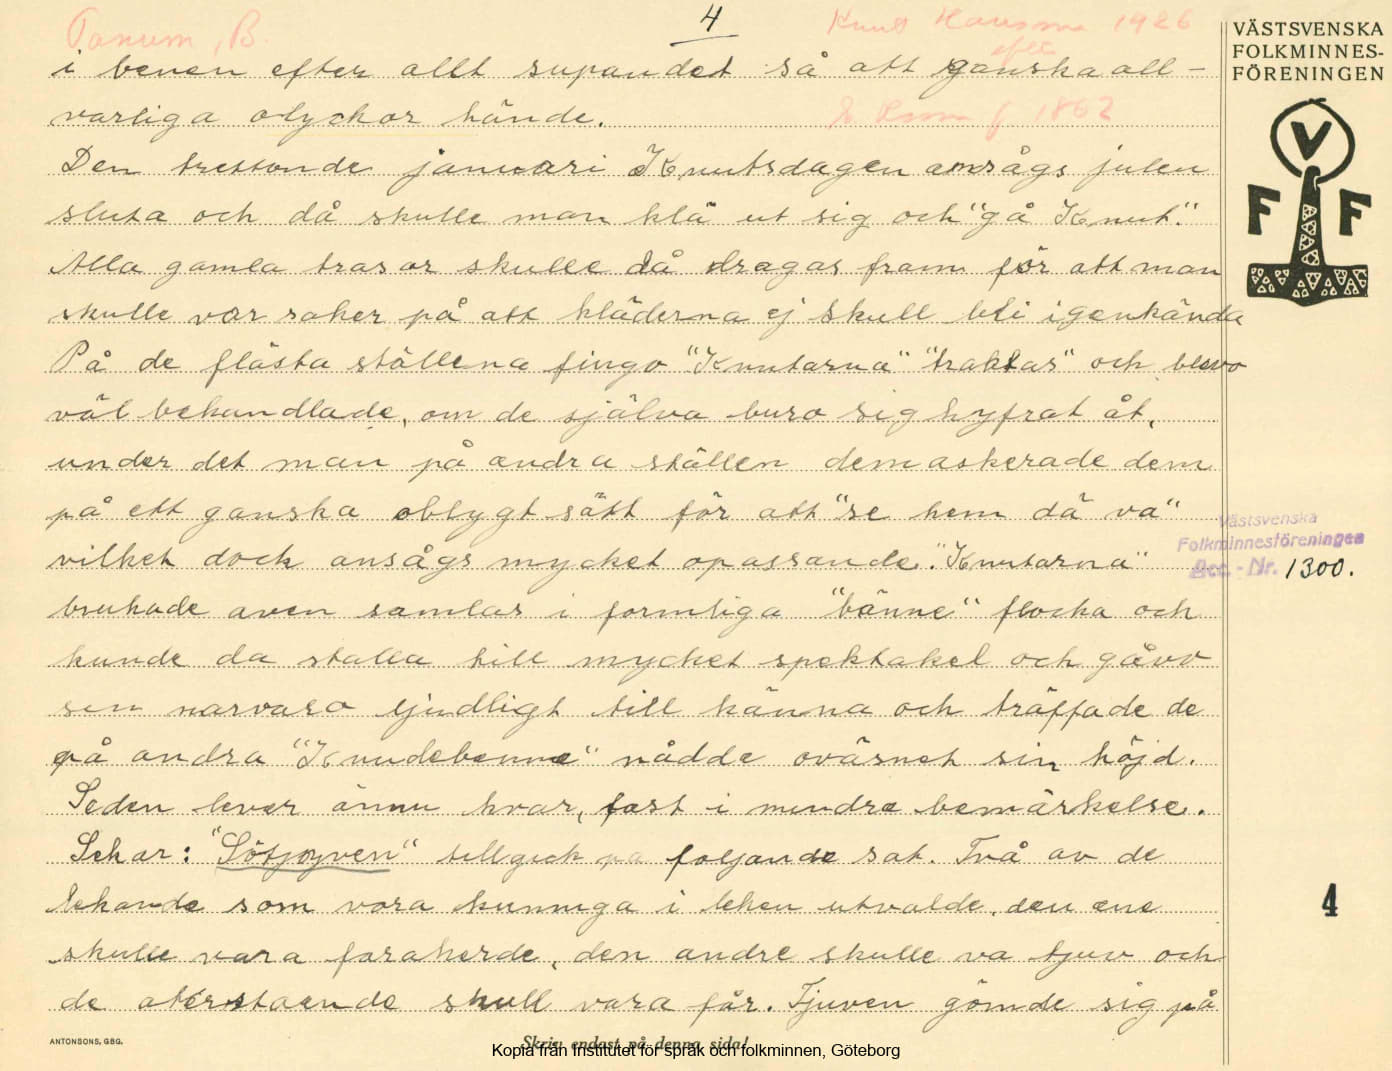 4
Tanum, B.
Knut Hansson 1926
efter
f 1862
VÄSTSVENSKA
FOLKMINNES-
FÖRENINGEN
V
F F
i benen efter allt supandet så att ganska all-
varliga olyckor hände.
Den trettonde januari Knutsdagen ansågs julen
sluta och då skulle man klä ut sig och "gå Knut".
Alla gamla trasor skulle då dragas fram för att man
skulle var saker på att kläderna ej skull bli igenkända
På de flästa ställena fingo "Knutarna" "traktar" och blevo
väl behandlade, om de själva buro sig hyfrat åt,
under det man på andra ställen demaskerade dem
på ett ganska oblygt sätt för att "se hem dä va"
vilket dock ansågs mycket opassande. "Knutarna"
brukade aven samlas i formliga "bänne" flocka och
kunde da stalla till mycket spektakel och gåvo
sin narvaro ljudligt till känna och träffade de
på andra "Knudebenne" nådde oväsnet sin höjd.
Seden lever ännu kvar, fast i mindre bemärkelse.
Lekar: "Sötjyven" tillgick pa foljande sat. Två av de
lekande som vora kunniga i leken utvalde, den ene
skulle vara faraherde, den andre skulle va tjuv och
de aterstaende skull vara får. Tjuven gömde sig på
Västsvenska
Folkminnesföreningen
Acc. - Nr. 1300.
4
ANTONSONS, GBG.
Skriv endast på denna sida!
Kopia från Institutet för språk och folkminnen, Göteborg